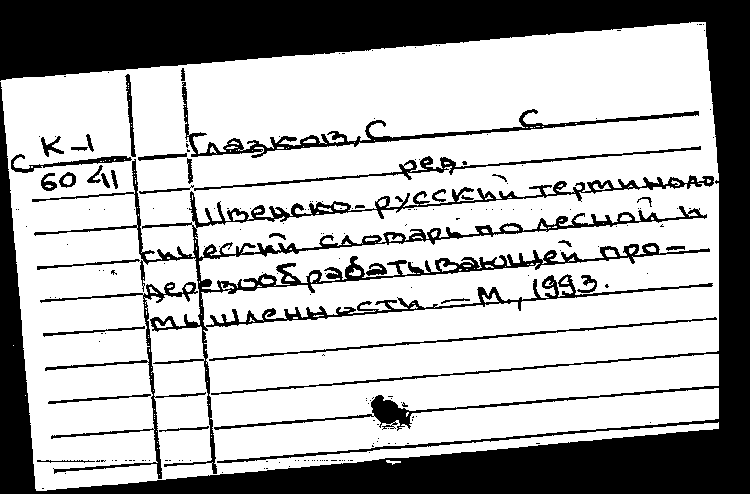 С К-1 Глазков, С С
6041 ред.
Шведско-русский терминоло-
гический словарь по лесной и
деревообрабатывающей про-
мышленности. — М., 1993.